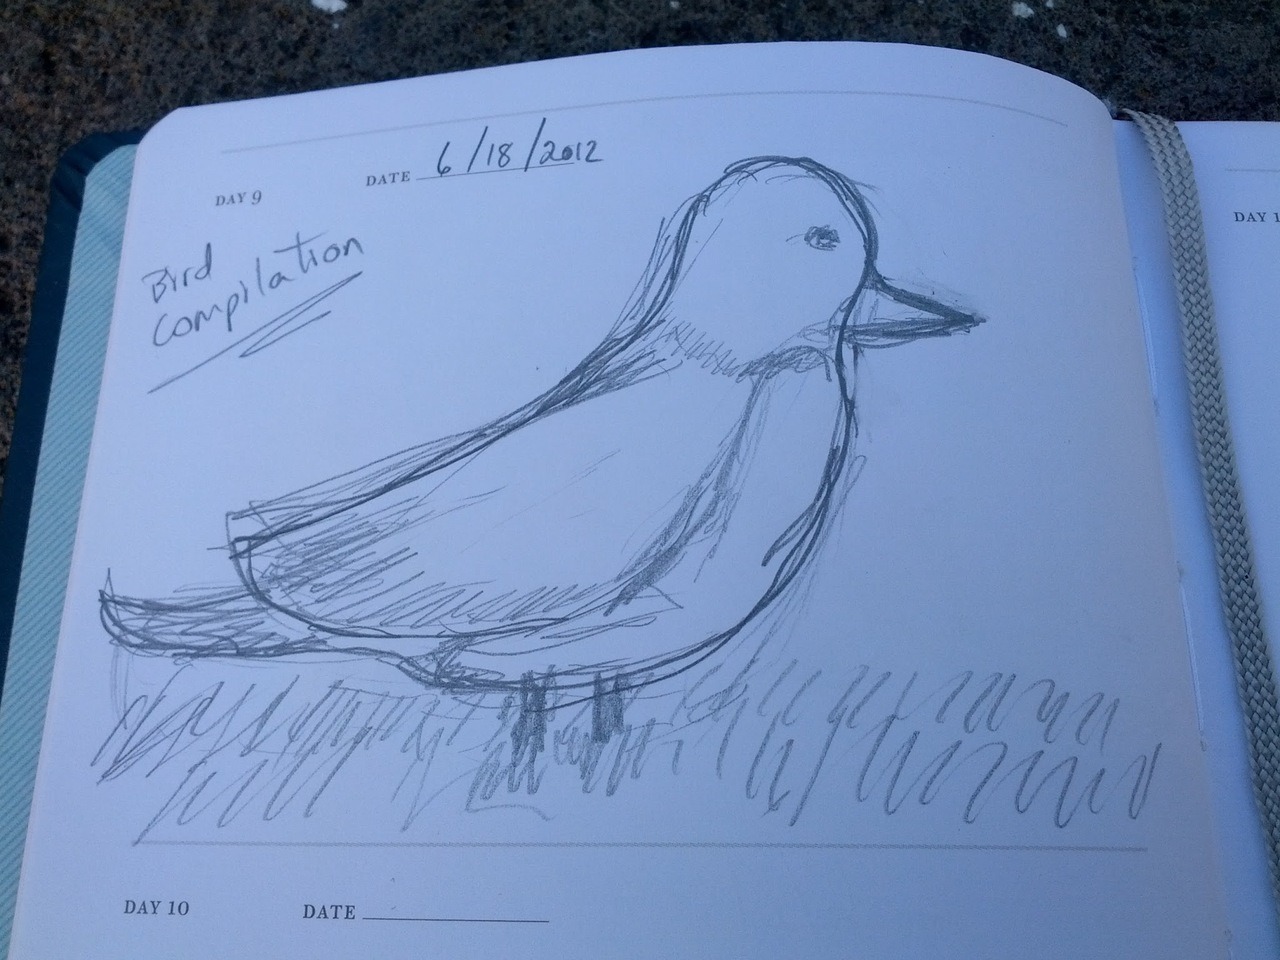 DAY 9 DATE 6/18/2012
Bird
compilation
DAY 10 DATE
DAY 1